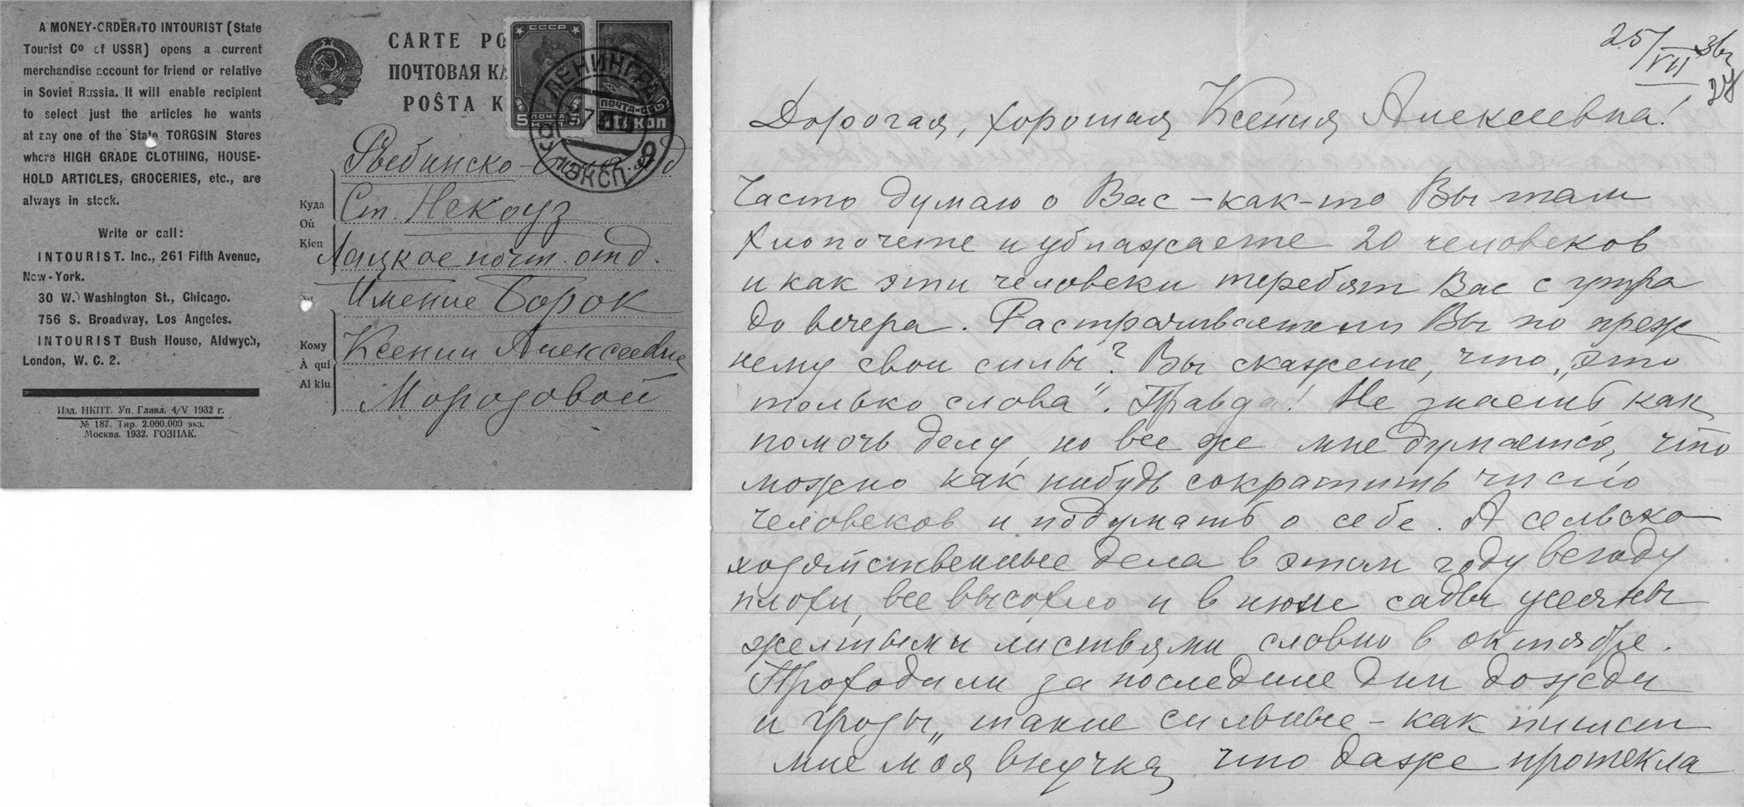 A MONEY-ORDER TO INTOURIST (State
Tourist Co of USSR) opens a current
merchandise account for friend or relative
in Soviet Russia. It will enable recipient
to select just the articles he wants
at any one of the State TORGSIN Stores
where HIGH GRADE CLOTHING, HOUSE-
HOLD ARTICLES, GROCERIES, etc., are
always in stock.
Write or call:
INTOURIST. Inc., 261 Fifth Avenue,
New-York.
30 W. Washington St., Chicago.
756 S. Broadway, Los Angeles.
INTOURIST Bush House, Aldwych,
London, W. C. 2.
Изд. НКПТ. Уп. Главл. 4/V 1932 г.
№ 187. Тир. 2.000.000 экз.
Москва. 1932. ГОЗНАК.
CARTE PO
ПОЧТОВАЯ КА
POŜTA K
СССР
5
ПОЧТА
КОП
ЛЕНИНГРАД
ЭКСП.
Куда
Où
Kien
Ст. Некоуз
Лацкое почт. отд.
Имение Борок
Кому
À qui
Al kiu
Ксении Алексеевне
Морозовой
25/VII 36г
Дорогая, хорошая Ксения Алексеевна!
Часто думаю о Вас – как-то Вы там
хлопочете и ублажаете 20 человеков
и как эти человеки теребят Вас с утра
до вечера. Растрачиваете ли Вы по преж
нему свои силы? Вы скажете, что „это
только слова“. Правда! Не знаешь как
помочь делу, но все же мне думается, что
можно как нибудь сократить число
человеков и подумать о себе. А сельско
хозяйственные дела в этом году всюду
плохи, все высохло и в июле сады усеяны
желтыми листьями словно в октябре.
Проходили за последние дни дожди
и грозы, такие сильные – как пишет
мне моя внучка, что даже протекла